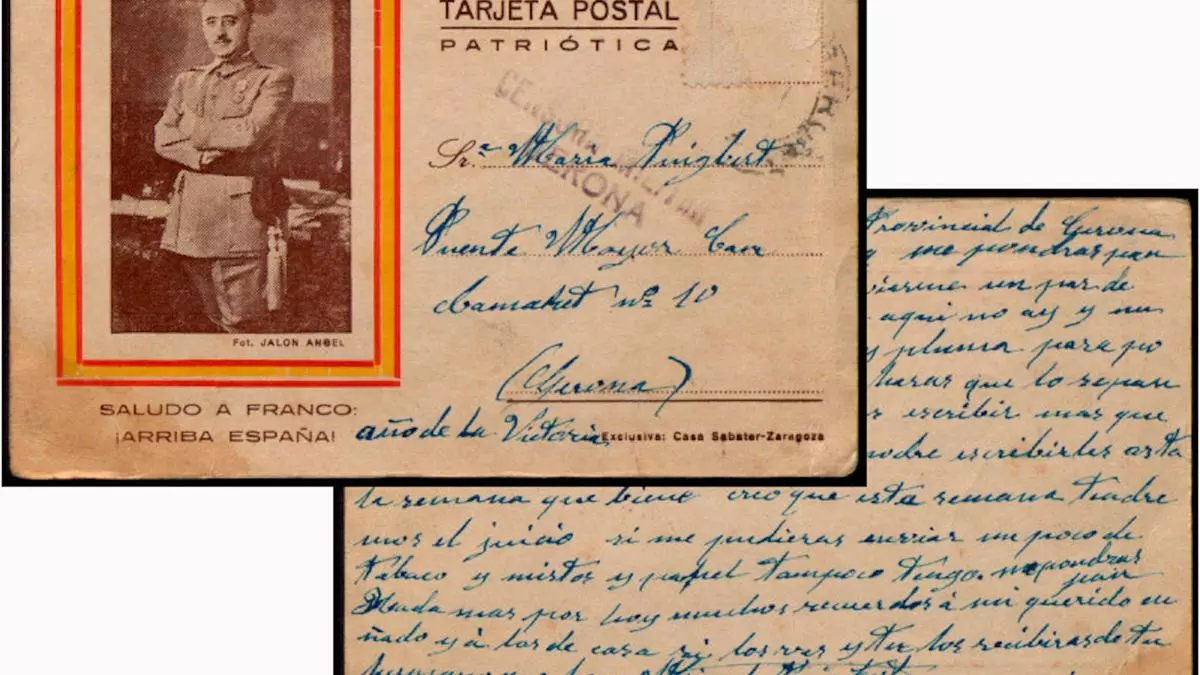 TARJETA POSTAL
PATRIÓTICA
CENSURA MILITAR
GERONA
Sr.ª Maria Puigbert
Puente Mayor Carr
Camaret nº 10
(Gerona)
Fot. JALON ANGEL
SALUDO A FRANCO:
¡ARRIBA ESPAÑA! año de la Victoria
Exclusiva: Casa Sabater-Zaragoza
Provincial de Gerona
y me pondras pan
un par de
aqui no ay y nu
y pluma para po
haras que lo sepan
escribir mas que
podre escribirles asta
la semana que biene creo que esta semana tendre
mos el juicio si me pudieras enviar un poco de
tabaco y mistos y papel tampoco tengo. me pondras
pan
Nada mas por hoy muchos recuerdos á mi querido cu
ñado y á los de casa si los ves y tu los recibiras de tu